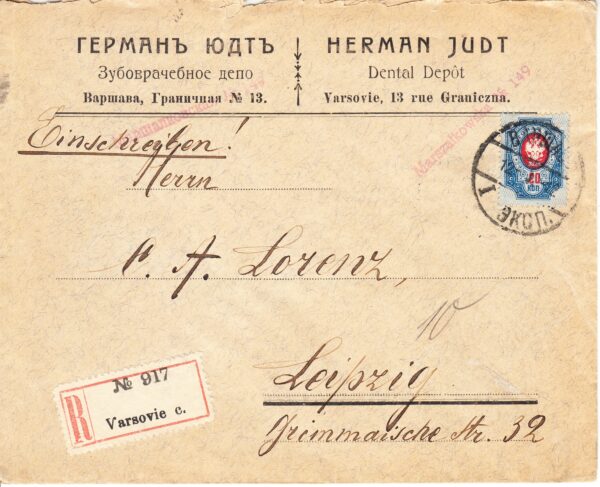 ГЕРМАНЪ ЮДТЪ
Зубоврачебное депо
Варшава, Граничная № 13.
HERMAN JUDT
Dental Depôt
Varsovie, 13 rue Graniczna.
Marszałkowska № 149
Einschreiben!
Herrn
20
КОП
ЭКСП.
1
1
C. A. Lorenz,
10
Leipzig
Grimmaische Str. 32
R
№ 917
Varsovie c.